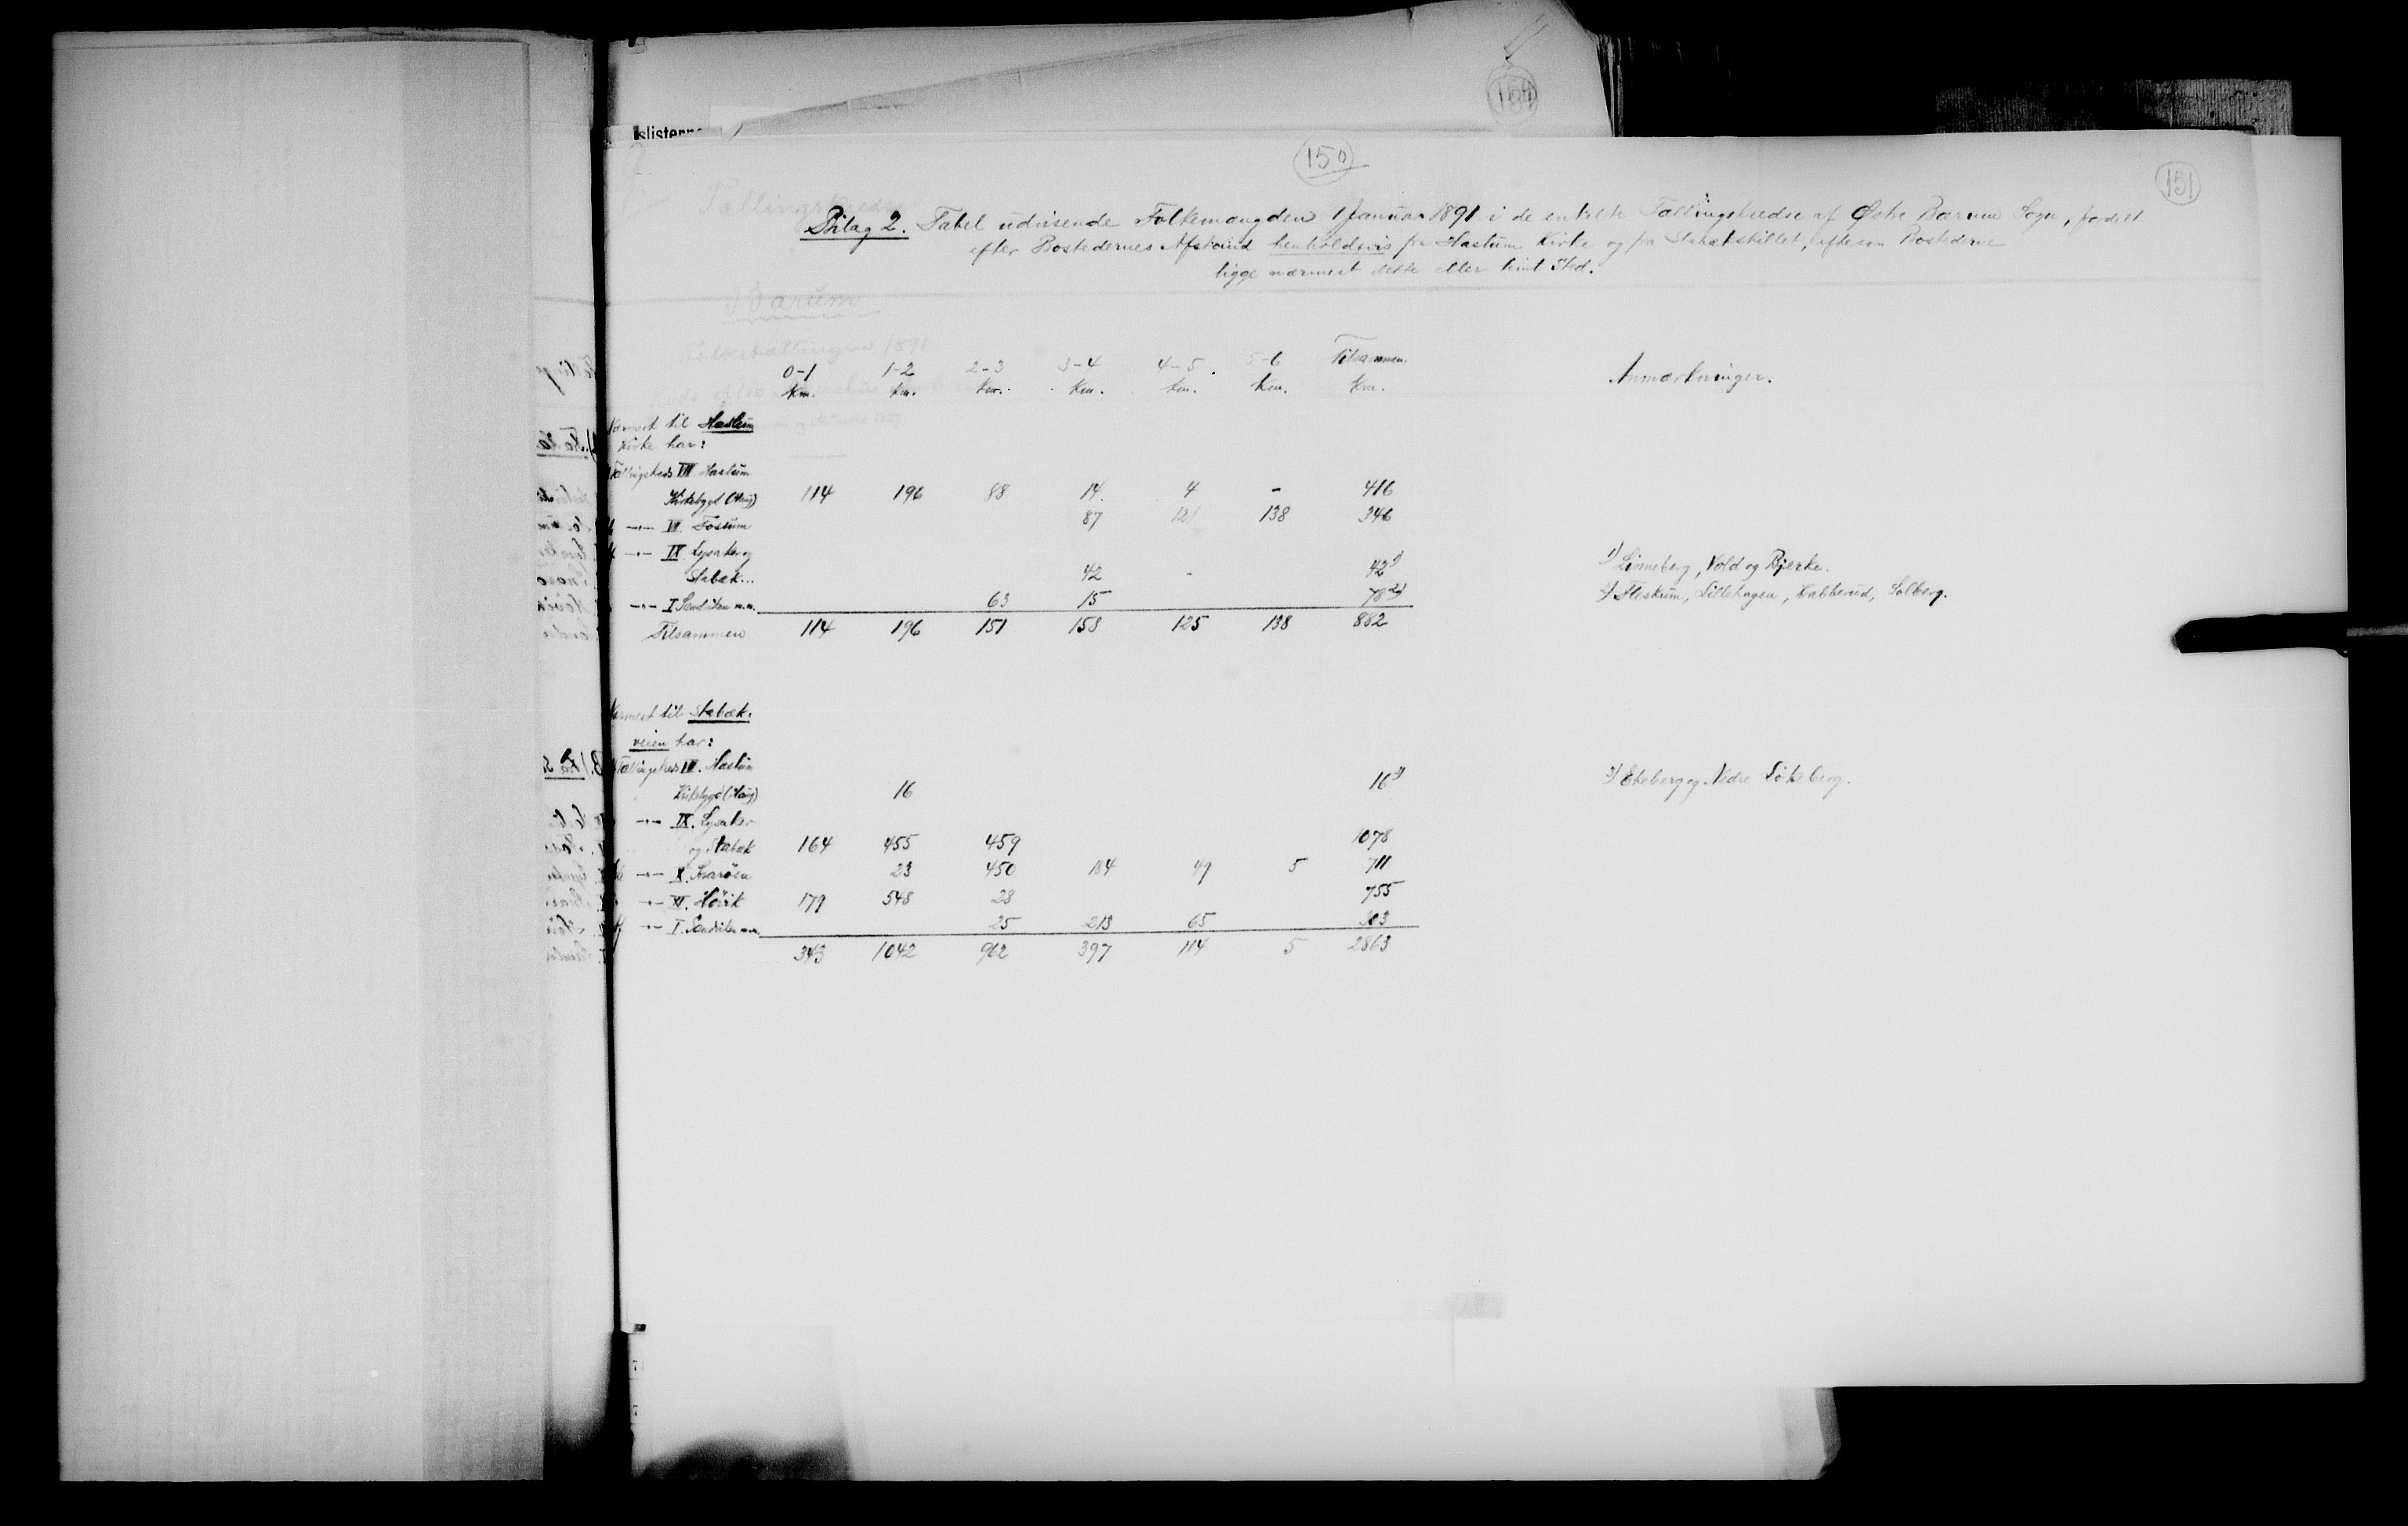 slisterne
154
150
151
Bilag 2. Tabel udvisende Folkemængden 1 Januar 1891 i de enkelte Tællingskredse af Østre Bærum Sogn, fordelt
efter Bostedernes Afstand henholdsvis fra Haslum Kirke og fra Stabækskillet, eftersom Bostederne
ligge nærmest dette eller hint Sted.
Bærum
Folketællingen 1891
0-1 1-2 2-3 3-4 4-5 5-6 Tilsammen.
Km. Km. Km. Km. Km. Km. Km.
Anmærkninger.
Nærmest til Haslum
Kirke har:
Tællingskreds VII Haslum
Kirkebygd (Haug) 114 196 88 14 4 - 416
-"- VI. Fossum 87 121 138 346
-"- IX Lysaker og
Stabæk... 42 - 42 1)
1) Linneberg, Vold og Bjerke.
-"- I Sandviken m.m. 63 15 78 2)
2) Fleskum, Lillehagen, Kabberud, Solberg.
Tilsammen 114 196 151 158 125 138 882
Nærmest til Stabæk-
veien har:
Tællingskreds VII. Haslum
Kirkebygd (Haug) 16 16 3)
3) Ekeberg og Nedre Løkeberg.
-"- IX. Lysaker
og Stabæk 164 455 459 1078
-"- X. Snarøen 23 450 184 49 5 711
-"- XI. Høvik 179 548 28 755
-"- I. Sandviken m.m. 25 213 65 303
343 1042 962 397 114 5 2863